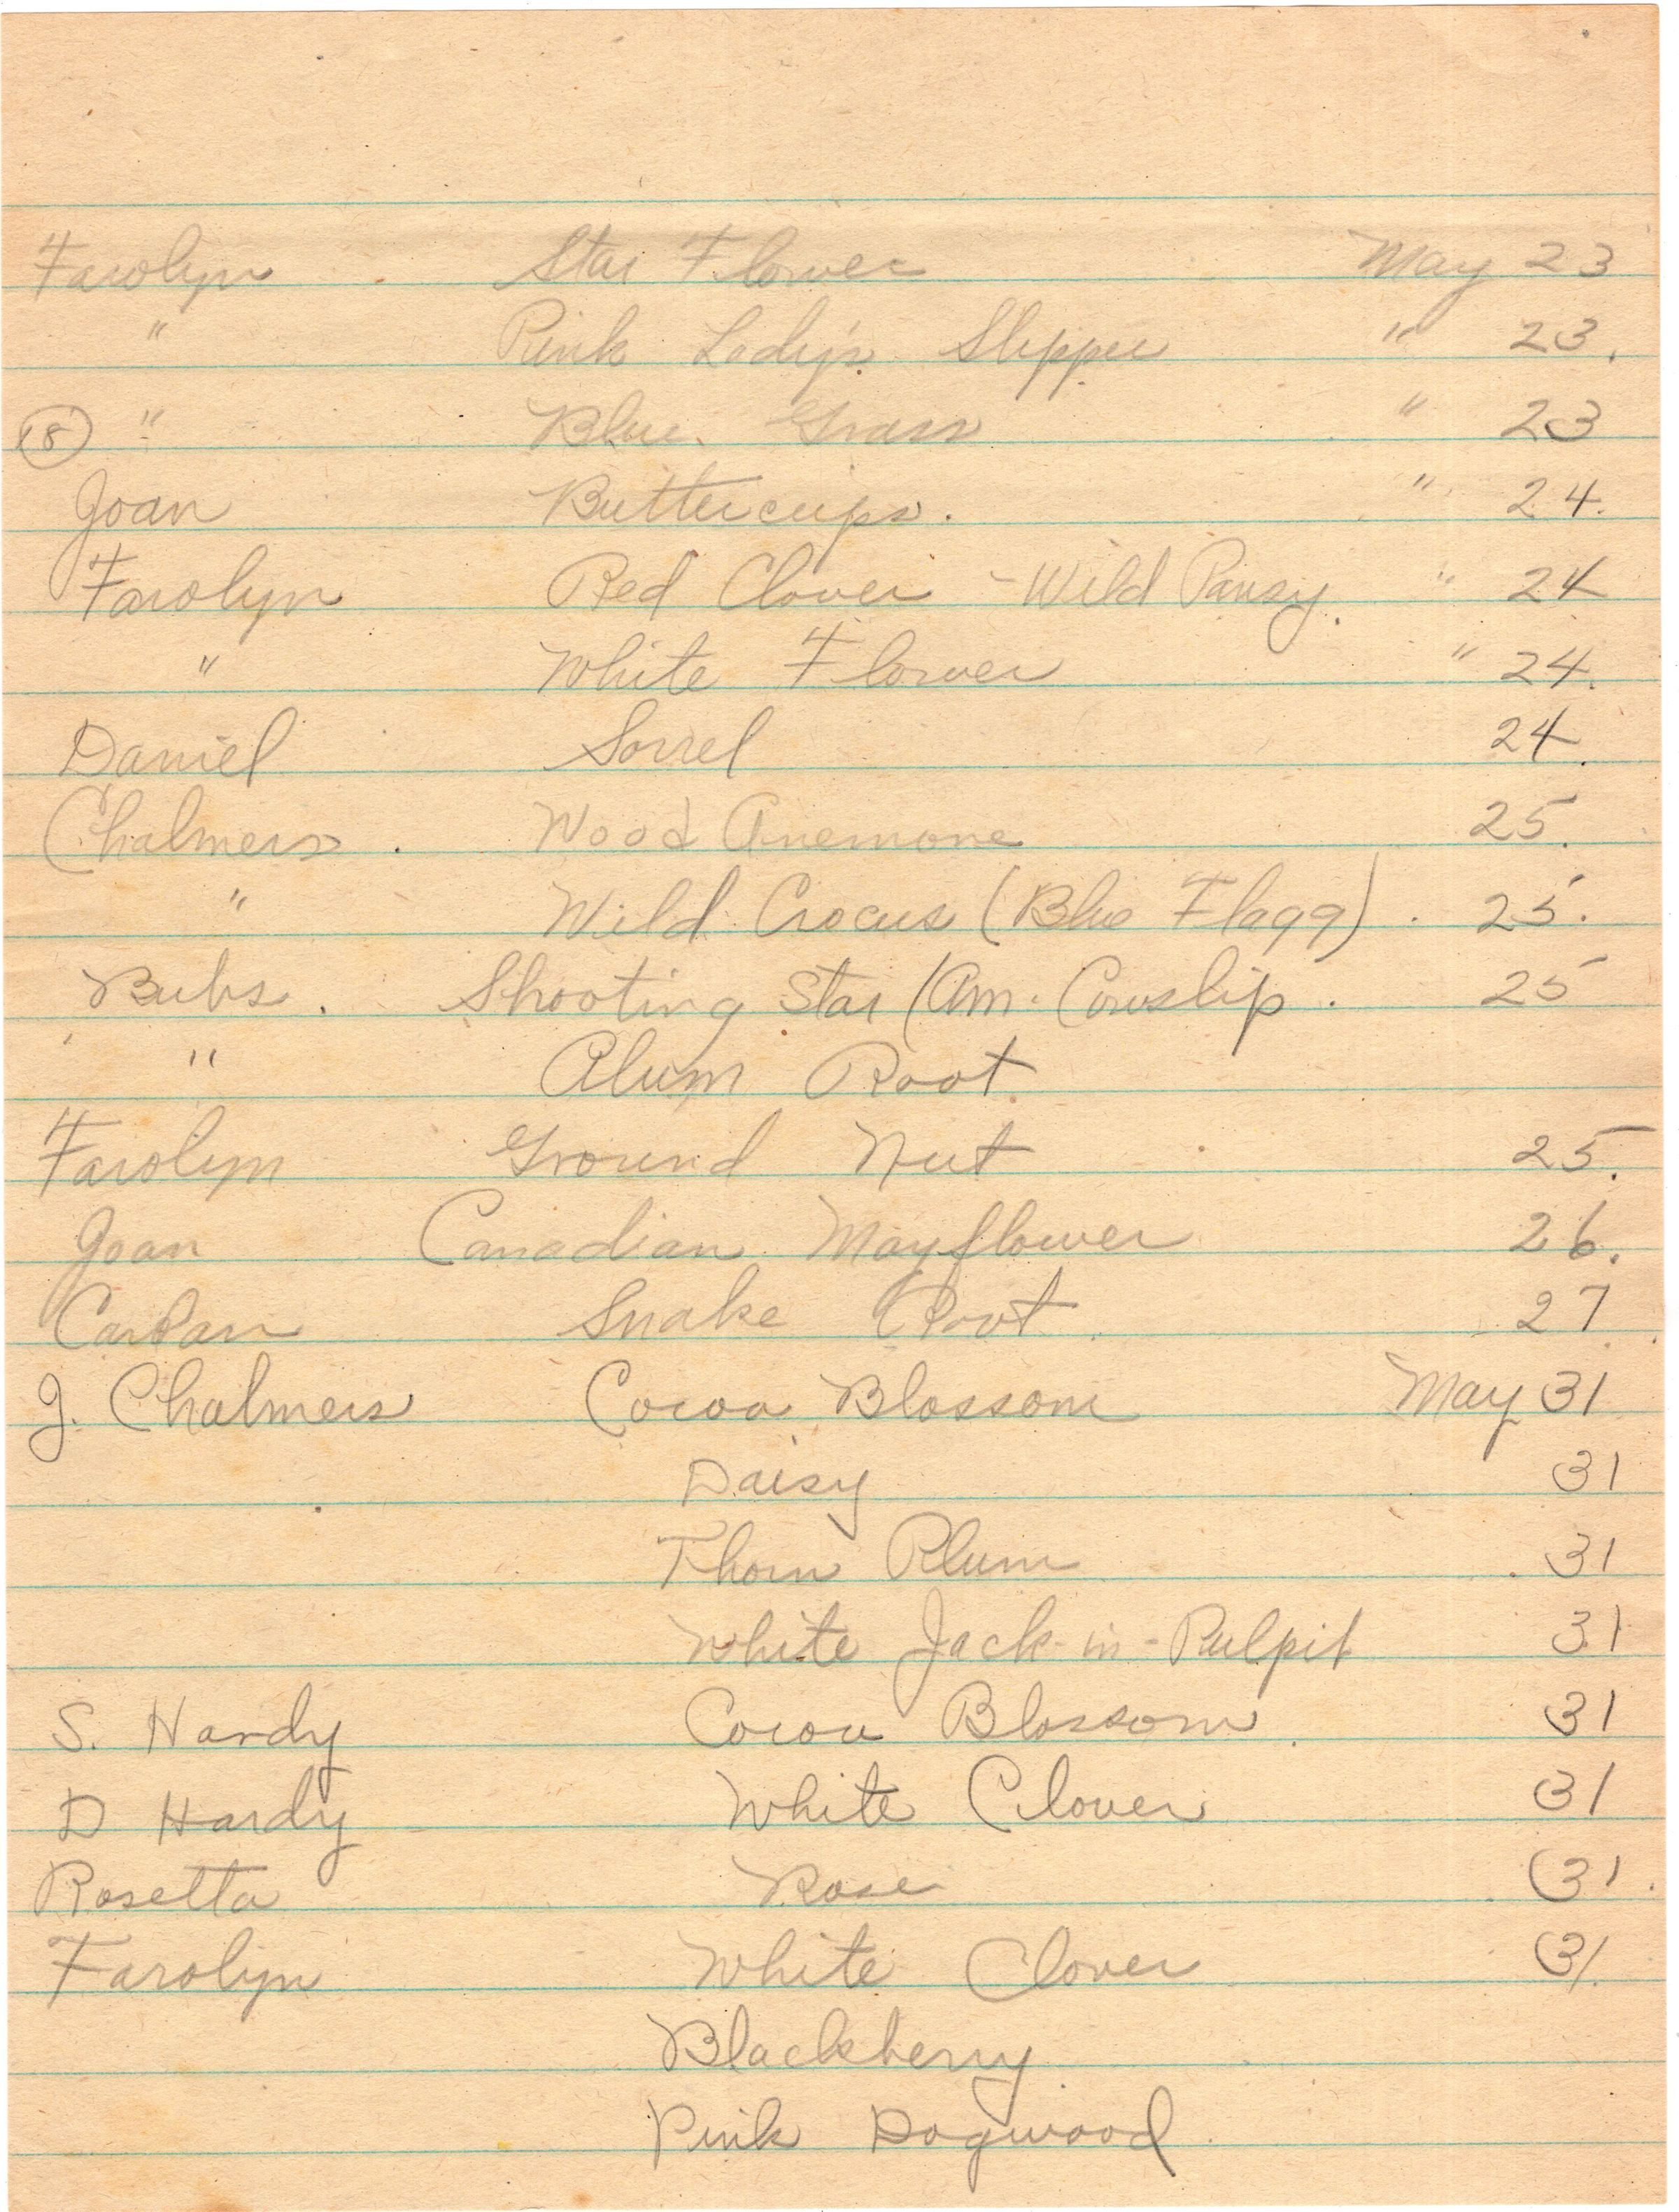 Farolyn Star Flower May 23
" Pink Lady's Slipper " 23.
(8) " Blue Grass " 23
Joan Buttercups. " 24.
Farolyn Red Clover - Wild Pansy. " 24
" White Flower " 24.
Daniel Sorrel 24.
Chalmers. Wood Anemone 25.
" Wild Crocus (Blue Flagg). 25.
Bubs. Shooting Star (Am. Cowslip. 25
" Alum Root.
Farolyn Ground Nut 25.
Joan Canadian Mayflower 26.
Snake Root. 27.
J. Chalmers Cocoa Blossom May 31
Daisy 31
Thorn Plum 31
White Jack-in-Pulpit 31
S. Hardy Cocoa Blossom. 31
D Hardy White Clover 31
Rosetta Rose 31.
Farolyn White Clover 31.
Blackberry
Pink Dogwood